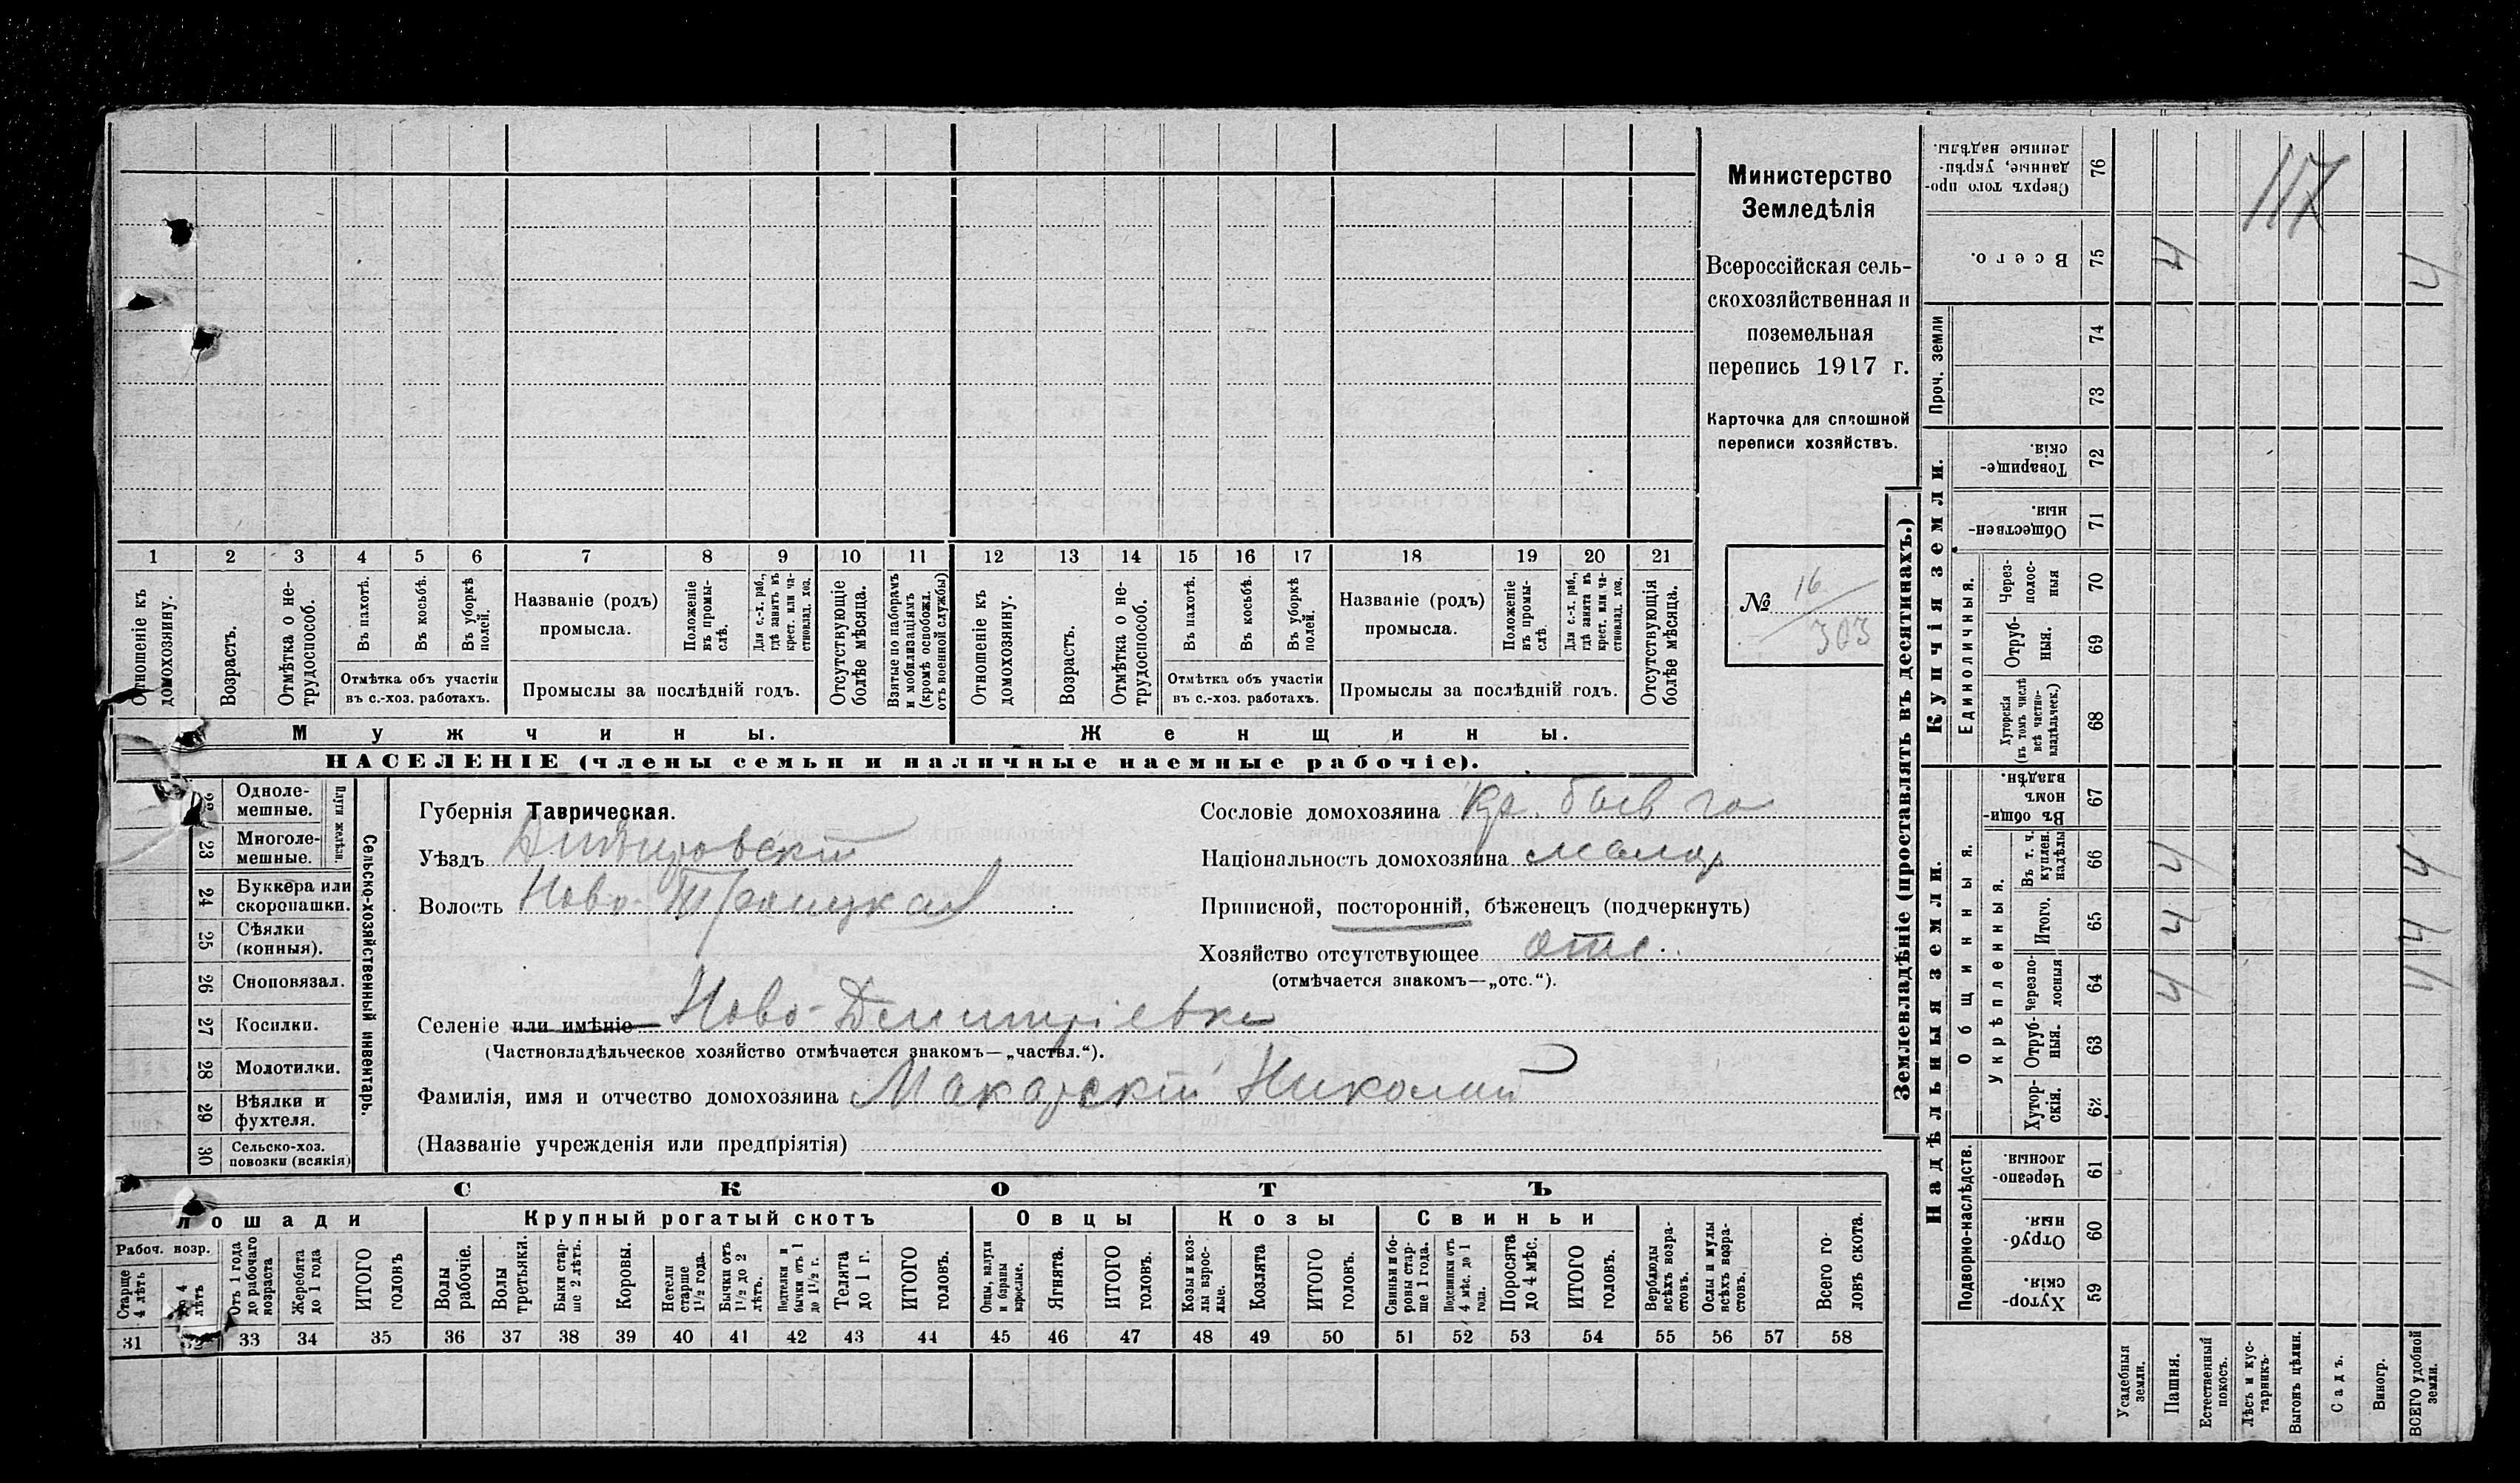 Министерство
Земледѣлія
Всероссійская сель-
скохозяйственная и
поземельная
перепись 1917 г.
Карточка для сплошной
переписи хозяйствъ.
№ 16
303
1 2 3 4 5 6 7 8 9 10 11 12 13 14 15 16 17 18 19 20 21
Отношеніе къ домохозяину.
Возрастъ.
Отмѣтка о не-трудоспособ.
Въ пахотѣ.
Въ косьбѣ.
Въ уборкѣ полей.
Отмѣтка объ участіи
въ с.-хоз. работахъ.
Названіе (родъ)
промысла.
Положеніе въ промы-слѣ.
Для с.-х. раб., гдѣ занятъ въ крест. или ча-стновлад. хоз.
Промыслы за послѣдній годъ.
Отсутствующіе болѣе мѣсяца.
Взятые по наборамъ и мобилизаціямъ (кромѣ освобожд. отъ военной службы)
Отношеніе къ домохозяину.
Возрастъ.
Отмѣтка о не-трудоспособ.
Въ пахотѣ.
Въ косьбѣ.
Въ уборкѣ полей.
Отмѣтка объ участіи
въ с.-хоз. работахъ.
Названіе (родъ)
промысла.
Положеніе въ промы-слѣ.
Для с.-х. раб., гдѣ занята въ крест. или ча-стновлад. хоз.
Промыслы за послѣдній годъ.
Отсутствующія болѣе мѣсяца.
Мужчины.
Женщины.
НАСЕЛЕНІЕ (члены семьи и наличные наемные рабочіе).
Одноле-мешные.
23 Многоле-мешные.
Плуги желѣзн.
24 Буккера или скоропашки.
25 Сѣялки (конныя).
26 Сноповязал.
27 Косилки.
28 Молотилки.
29 Вѣялки и фухтеля.
30 Сельско-хоз. повозки (всякія)
Сельско-хозяйственный инвентарь.
Губернія Таврическая.
Уѣздъ Днѣпровскій
Волость Ново-Троицкая
Селеніе или имѣніе Ново-Дмитріевка
(Частновладѣльческое хозяйство отмѣчается знакомъ—„частвл.“).
Фамилія, имя и отчество домохозяина Макарскій Николай
(Названіе учрежденія или предпріятія)
Сословіе домохозяина Кр. быв
Національность домохозяина малор
Приписной, посторонній, бѣженецъ (подчеркнуть)
Хозяйство отсутствующее отс.
(отмѣчается знакомъ—„отс.“).
СКОТЪ
Лошади
Крупный рогатый скотъ
Овцы
Козы
Свиньи
Рабоч. возр.
Старше 4 лѣтъ
до 4 лѣтъ
Отъ 1 года до рабочаго возраста
Жеребята до 1 года
ИТОГО головъ
Волы рабочіе.
Волы третьяки.
Быки стар-ше 2 лѣтъ.
Коровы.
Нетели старше 1½ года.
Бычки отъ 1½ до 2 лѣтъ.
Подтелки и бычки отъ 1 до 1½ г.
Телята до 1 г.
ИТОГО головъ.
Овцы, валухи и бараны взрослые.
Ягнята.
ИТОГО головъ.
Козы и коз-лы взрос-лые.
Козлята
ИТОГО головъ.
Свиньи и бо-ровы стар-ше 1 года.
Подсвинки отъ 4 мѣс. до 1 года.
Поросята до 4 мѣс.
ИТОГО головъ.
Верблюды всѣхъ возра-стовъ.
Ослы и мулы всѣхъ возра-стовъ.
Всего го-ловъ скота.
31 32 33 34 35 36 37 38 39 40 41 42 43 44 45 46 47 48 49 50 51 52 53 54 55 56 57 58
Землевладѣніе (проставлять въ десятинахъ.)
Купчія земли.
Надѣльныя земли.
117
Сверхъ того про-данные, укрѣп-ленные надѣлы. 76
Всего. 75 4 4
Проч. земли
74
73
Товарище-скія 72
Обществен-ныя. 71
Единоличныя.
Через-полос-ныя 70
Отруб-ныя. 69
Хуторскія (въ томъ числѣ всѣ частно-владѣльческ.) 68
Общинныя.
Въ общин-номъ владѣн. 67
Укрѣпленныя.
Въ т. ч. куплен. надѣлы 66 4 4
Итого. 65 4 4
Черезпо-лосныя 64 4 4
Отруб-ныя. 63
Хутор-скія. 62
Подворно-наслѣдств.
Черезпо-лосныя. 61
Отруб-ныя. 60
Хутор-скія. 59
Усадебныя земли.
Пашня.
Естественный покосъ.
Лѣсъ и кус-тарникъ.
Выгонъ цѣлин.
Садъ.
Виногр.
ВСЕГО удобной земли.